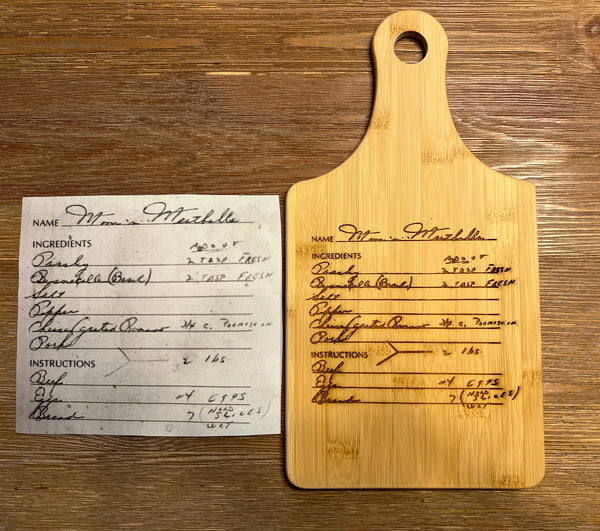 NAME Mom's Meatballs
INGREDIENTS ABOUT
Parsley 2 TBSP FRESH
(Basil) 2 TBSP FRESH
Salt
Pepper
Cheese/Grated Romano 3/4 C. PARMESAN
Pork
INSTRUCTIONS 2 lbs.
Beef
Eggs 4 EGGS
Bread 7 (HARD SLICES)
WET
NAME Mom's Meatballs
INGREDIENTS ABOUT
Parsley 2 TBSP FRESH
(Basil) 2 TBSP FRESH
Salt
Pepper
Cheese/Grated Romano 3/4 C. PARMESAN
Pork
INSTRUCTIONS 2 lbs.
Beef
Eggs 4 EGGS
Bread 7 (HARD SLICES)
WET